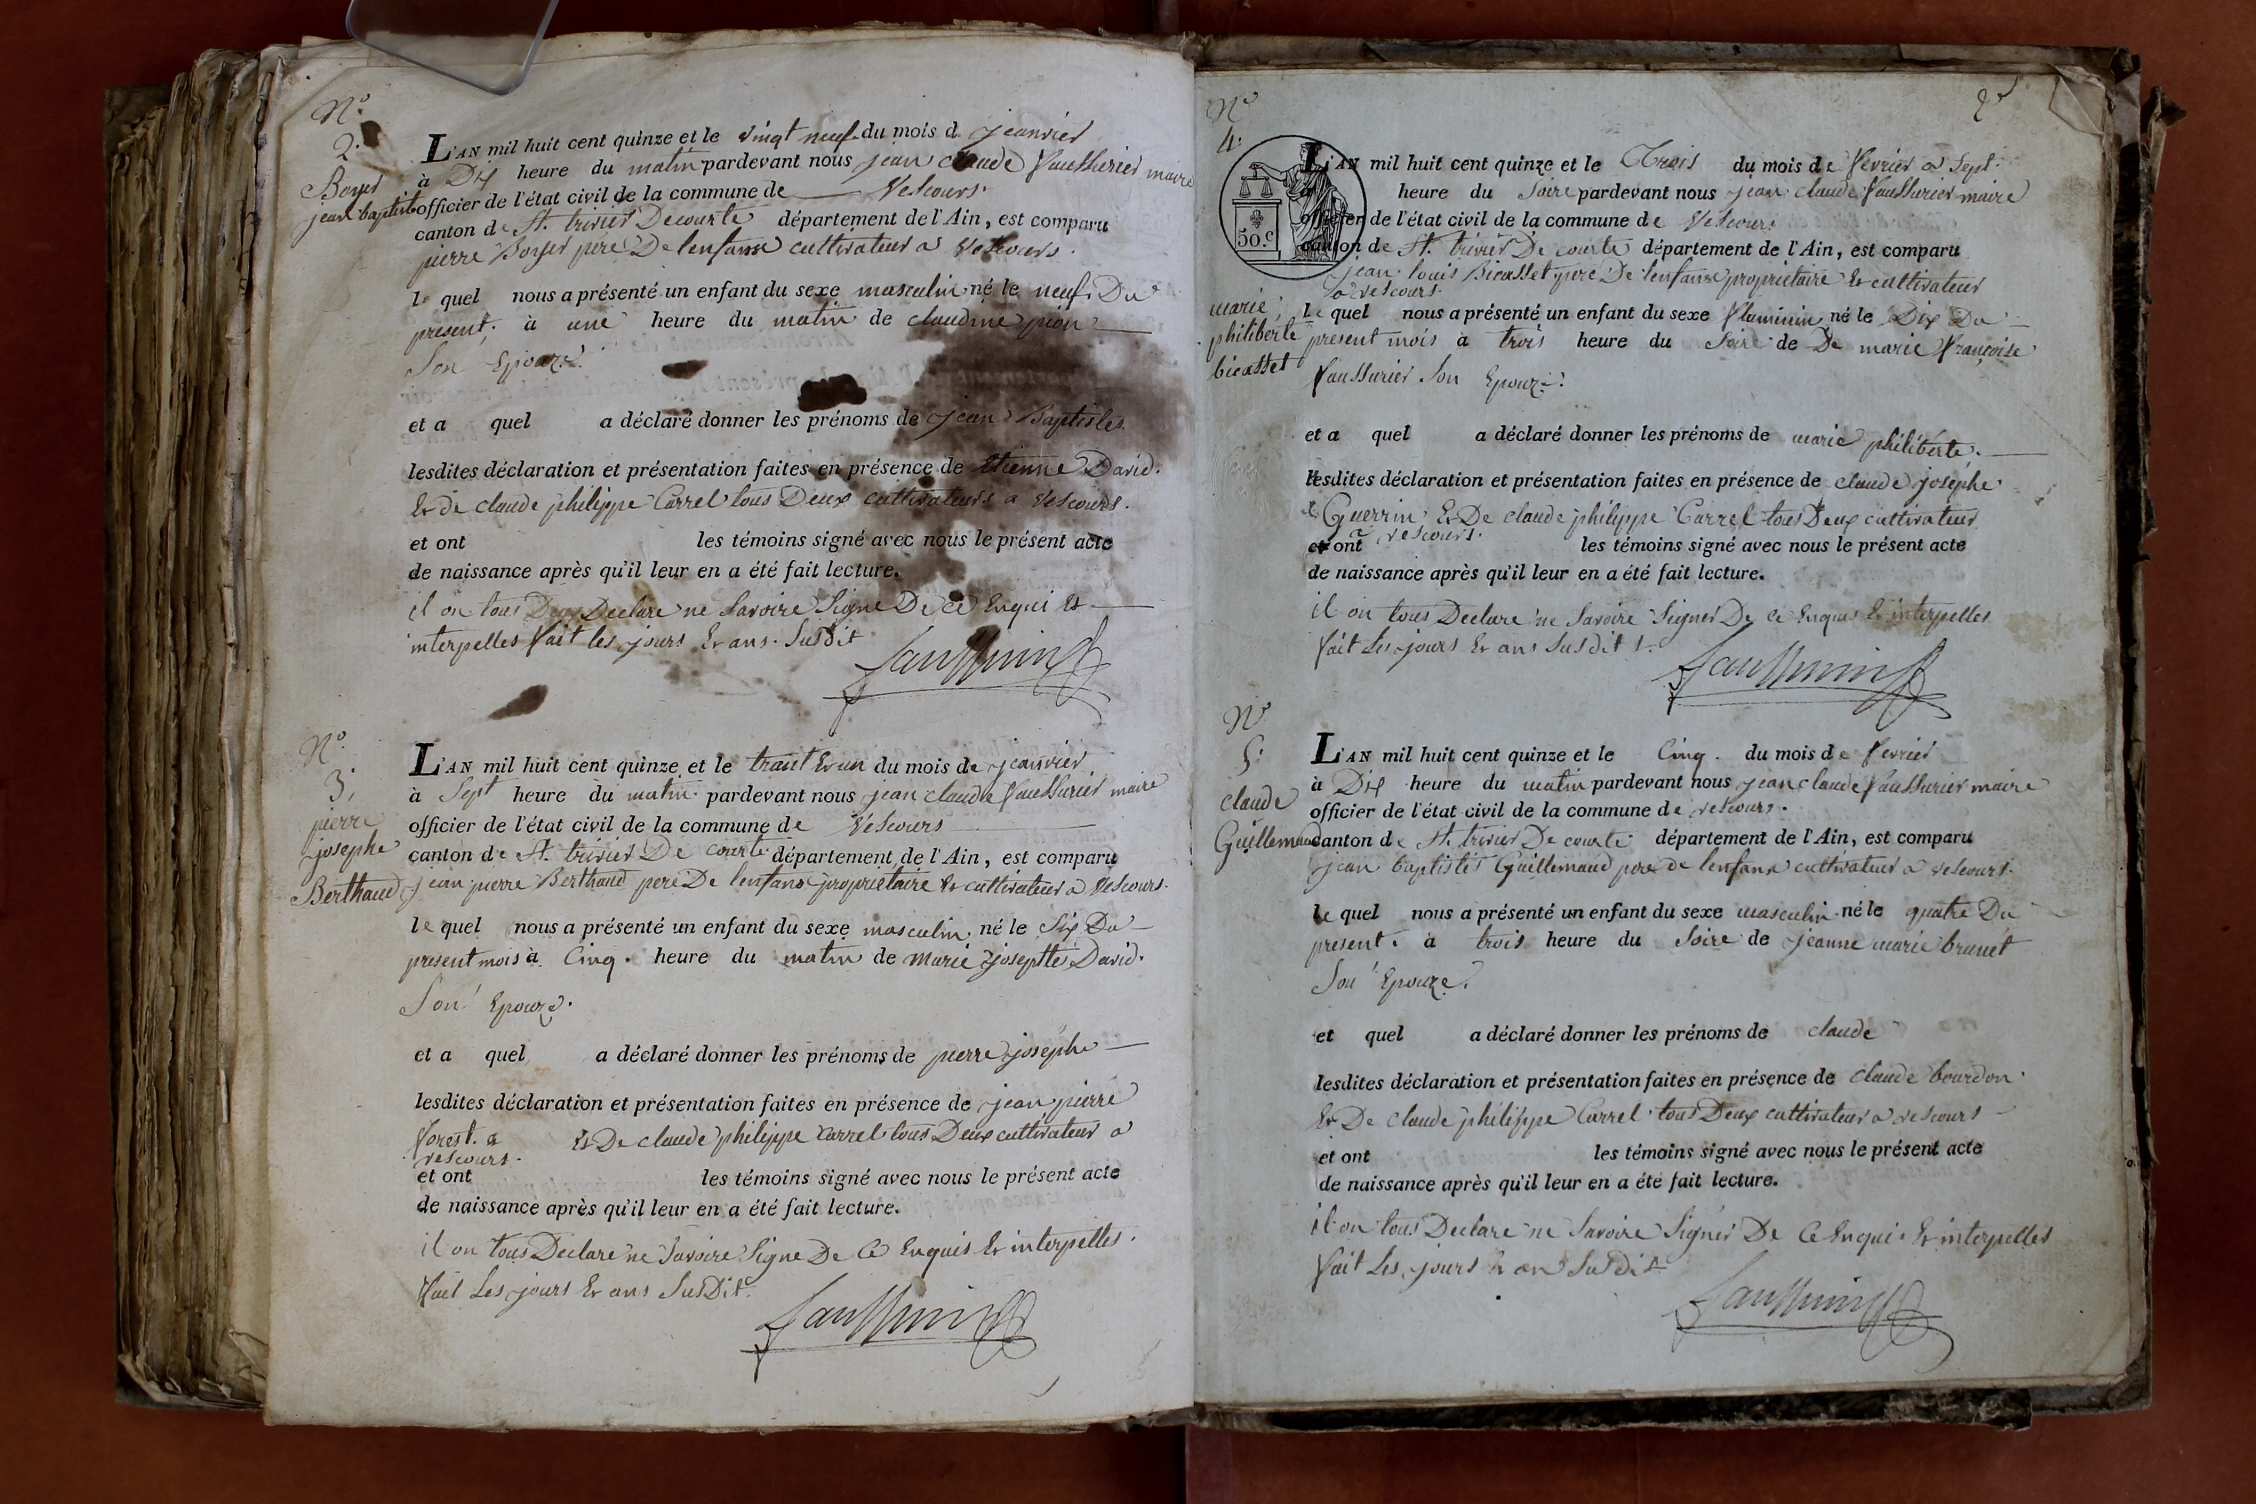 N°
2.
Boyer
jean baptiste
L'AN mil huit cent quinze et le vingt neuf du mois de jeanvier
à Dix heure du matin pardevant nous jean claude Vaussurier maire
officier de l'état civil de la commune de Vescours.
canton de St. trivier Decourte département de l'Ain, est comparu
pierre Boyer pere De lenfant cultivateur a Vescours.
le quel nous a présenté un enfant du sexe masculin né le neuf Du
present. à une heure du matin de claudine pion
Son Epouze.
et a quel a déclaré donner les prénoms de jean Baptistes
lesdites déclaration et présentation faites en présence de Etienne David.
Et de claude philippe Carrel tous Deux cultivateurs a Vescours.
et ont les témoins signé avec nous le présent acte
de naissance après qu'il leur en a été fait lecture.
il on tous Deux Declare ne Savoire Signe De ce Enqui Et
interpelles fait les jours Et ans Susdit
N°
3.
pierre
josephe
Berthaud
L'AN mil huit cent quinze et le trant Et un du mois de jeanvier
à Sept heure du matin pardevant nous jean claude Vaussurier maire
officier de l'état civil de la commune de Vescours
canton de St. trivier De courte département de l'Ain, est comparu
jean pierre Berthaud pere De lenfant proprietaire Et cultivateur a Vescours.
le quel nous a présenté un enfant du sexe masculin né le Six Du
present mois à Cinq. heure du matin de Marie josephte David.
Son Epouze.
et a quel a déclaré donner les prénoms de pierre josephe
lesdites déclaration et présentation faites en présence de jean pierre
forest. a Et De claude philippe Carrel tous Deux cultivateur a
vescours.
et ont les témoins signé avec nous le présent acte
de naissance après qu'il leur en a été fait lecture.
il on tous Declare ne Savoire Signe De Ce Enquis Et interpelles.
fait Les jours Et ans SusDit.
N°
4.
50.c
marie
philiberte
bicasset
L'AN mil huit cent quinze et le Trois du mois de fevrier a Sept.
heure du Soire pardevant nous jean claude Vaussurier maire
officier de l'état civil de la commune de Vescours
canton de St. trivier De courte département de l'Ain, est comparu
jean louis Bicasset pere De lenfant proprietaire Et cultivateur
a vescours.
le quel nous a présenté un enfant du sexe flaminin né le Dix Du
present mois à trois heure du Soire de De marie françoise
Vaussurier Son Epouze.
et a quel a déclaré donner les prénoms de marie philiberte.
lesdites déclaration et présentation faites en présence de claude josephe
Guerrin Et De claude philippe Carrel tous Deux cultivateur
a vescours.
et ont les témoins signé avec nous le présent acte
de naissance après qu'il leur en a été fait lecture.
il on tous Declare ne Savoire Signer De ce Enquis Et interpelles
fait Les jours Et ans Susdit
N°
5.
claude
Guillemaud
L'AN mil huit cent quinze et le Cinq. du mois de fevrier
à Dix heure du matin pardevant nous jean claude Vaussurier maire
officier de l'état civil de la commune de vescours.
canton de St. trivier De courte département de l'Ain, est comparu
jean baptistes Guillemaud pere de lenfant cultivateur a vescours.
le quel nous a présenté un enfant du sexe masculin né le quatre Du
present. à trois heure du Soire de jeanne marie brunet
Son Epouze.
et quel a déclaré donner les prénoms de claude
lesdites déclaration et présentation faites en présence de claude bourdon
Et De claude philippe Carrel tous Deux cultivateur a vescours
et ont les témoins signé avec nous le présent acte
de naissance après qu'il leur en a été fait lecture.
il on tous Declare ne Savoire Signer De Ce Enqui Et interpelles
fait Les jours Et an Susdit